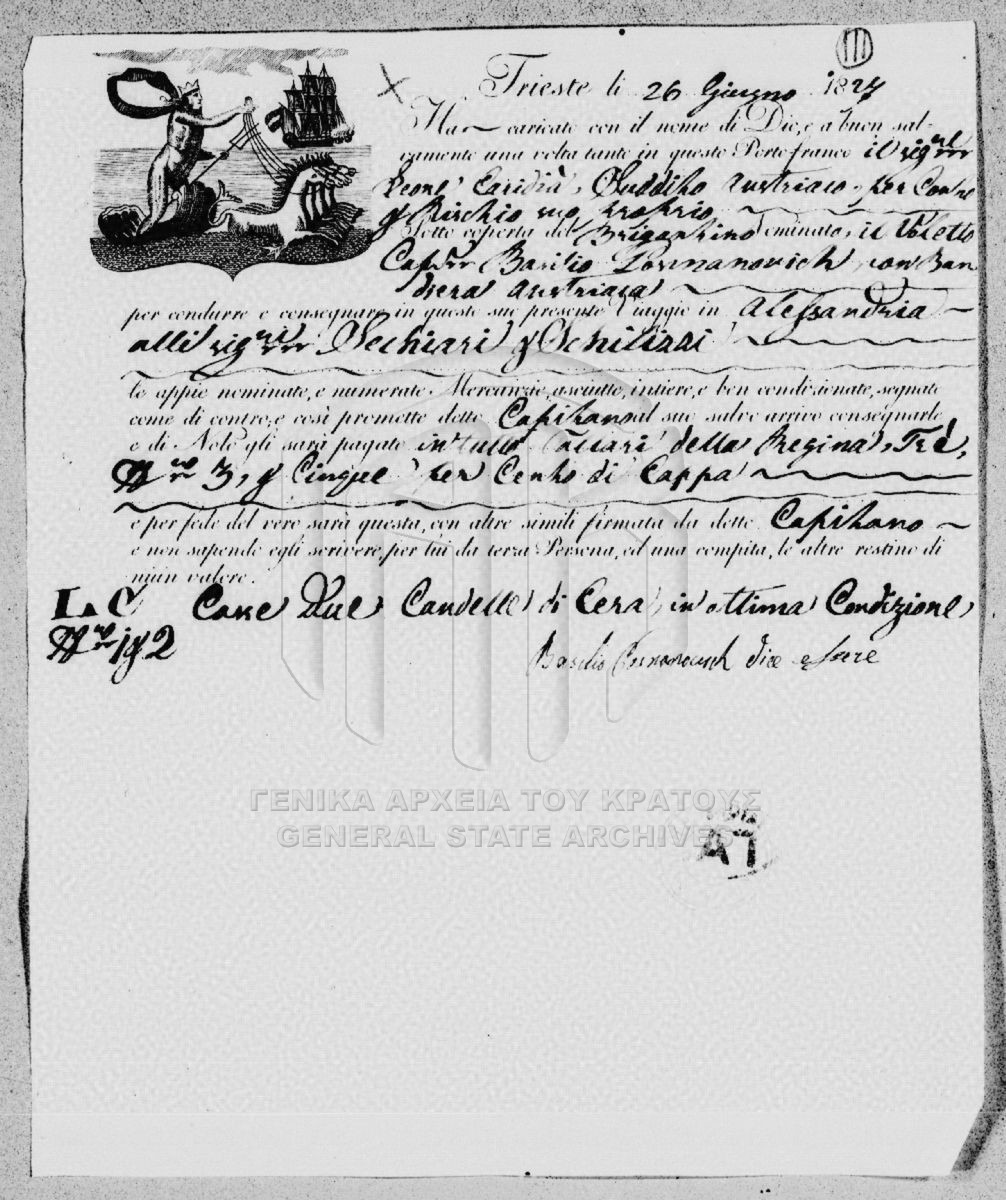 III
Trieste li 26 Giugno 1827
Ha caricato con il nome di Dio, e a buon sal-
vamento una volta tanto in questo Porto-franco il sigre
Leone Caridià, Suddito Austriaco, per Conto
& Rischio suo proprio
Sotto coperta del Brigantino nominato, il
Capn Basilio con Ban
diera Austriaca
per condurre e consegnare in questo suo presente Viaggio in Alessandria
alli sigri Sechiari & Schilizzi
le appiè nominate, e numerate Mercanzie, asciutte, intiere, e ben condizionate, segnate
come di contro; e così promette detto Capitano al suo salvo arrivo consegnarle
e di Nolo gli sarà pagato in tutto Tallari della Regina, Trè,
Nro 3, & Cinque per Cento di Cappa
e per fede del vero sarà questa, con altre simili firmata da detto Capitano
e non sapendo egli scrivere, per lui da terza Persona, ed una compita, le altre restino di
niun valore.
L. C Casse Due Candelle di Cera, in ottima Condizione
Nro 1 & 2
Basilio dice essere
ΓΕΝΙΚΑ ΑΡΧΕΙΑ ΤΟΥ ΚΡΑΤΟΥΣ
GENERAL STATE ARCHIVES